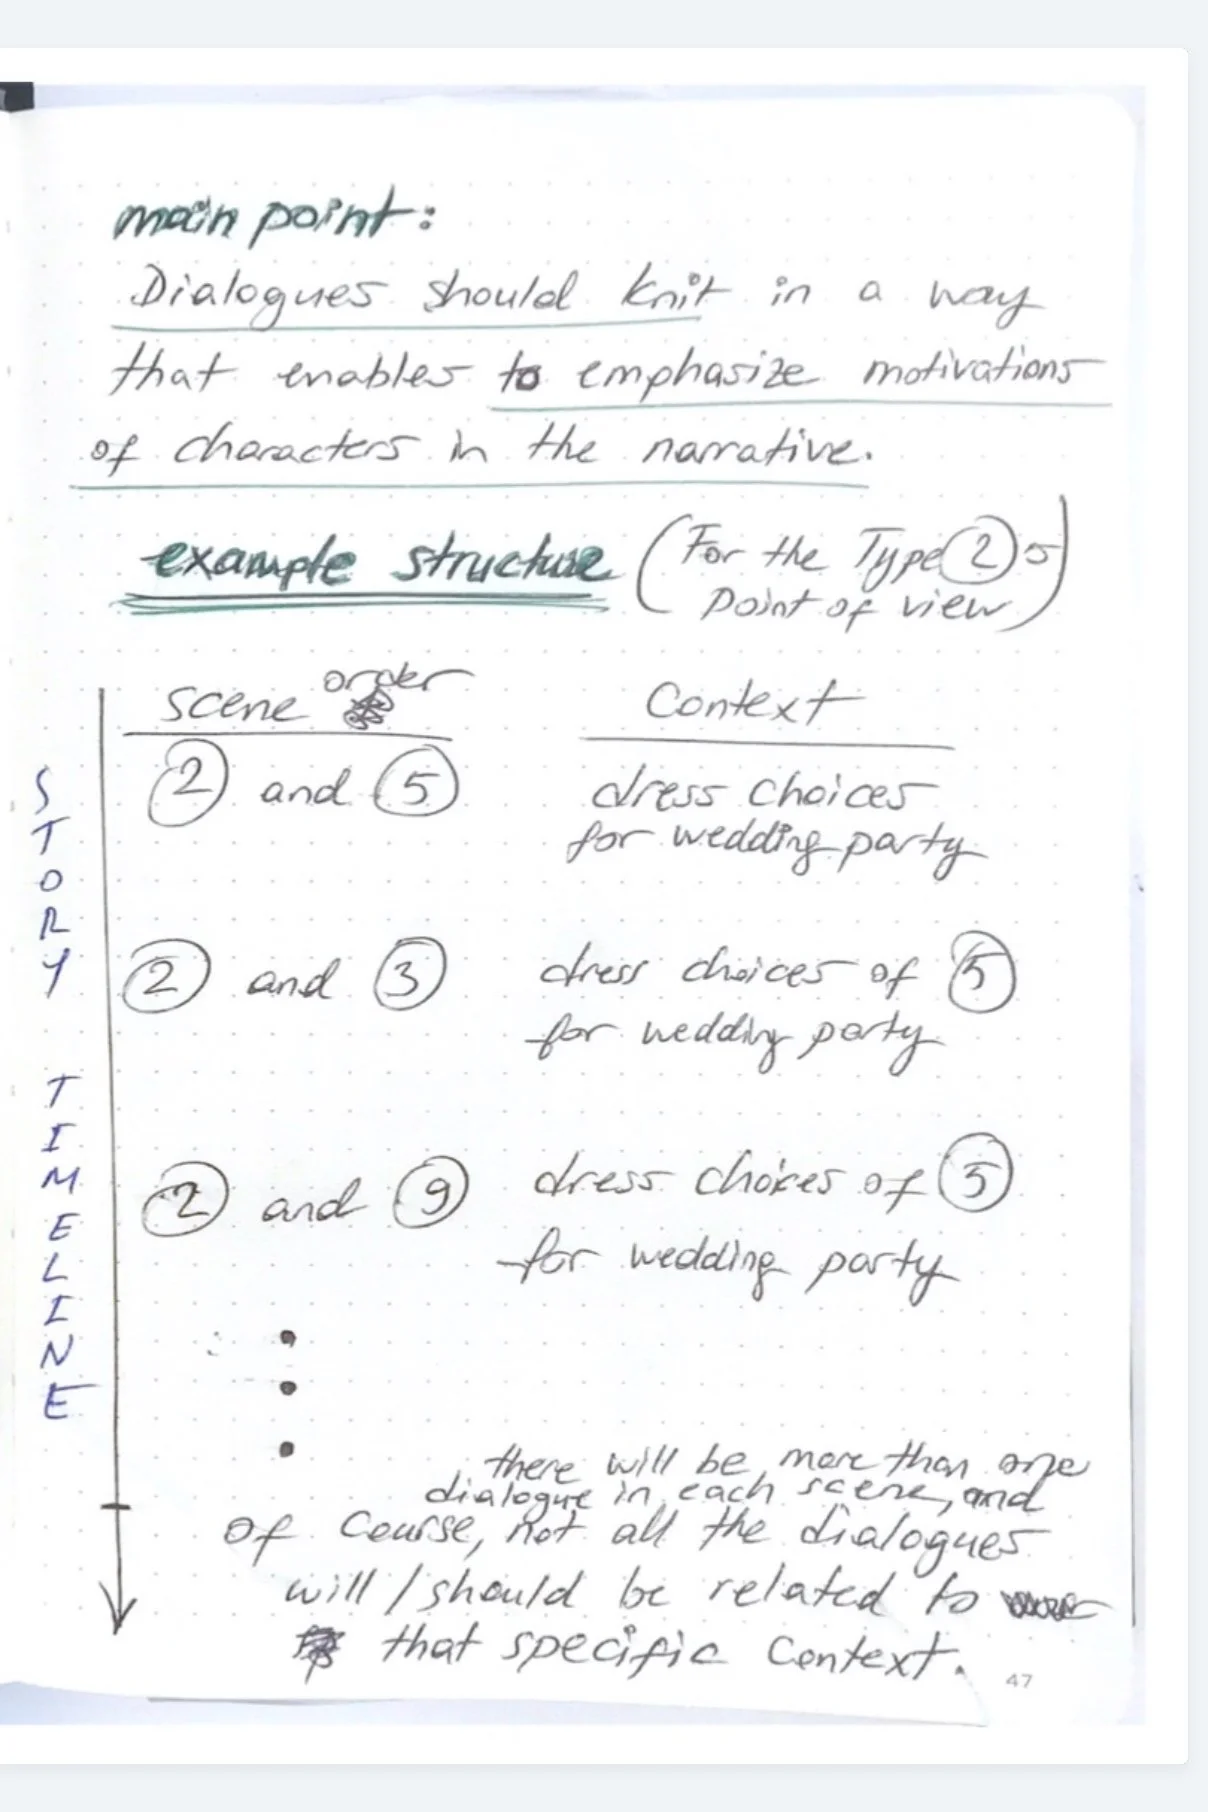 main point:
Dialogues should knit in a way
that enables to emphasize motivations
of characters in the narrative.
example structure (For the Type 2's
Point of view)
scene order Context
2 and 5 dress choices
for wedding party
2 and 3 dress choices of 5
for wedding party
2 and 9 dress choices of 5
for wedding party
STORY TIMELINE
there will be more than one
dialogue in each scene, and
of course, not all the dialogues
will / should be related to
that specific context.
47